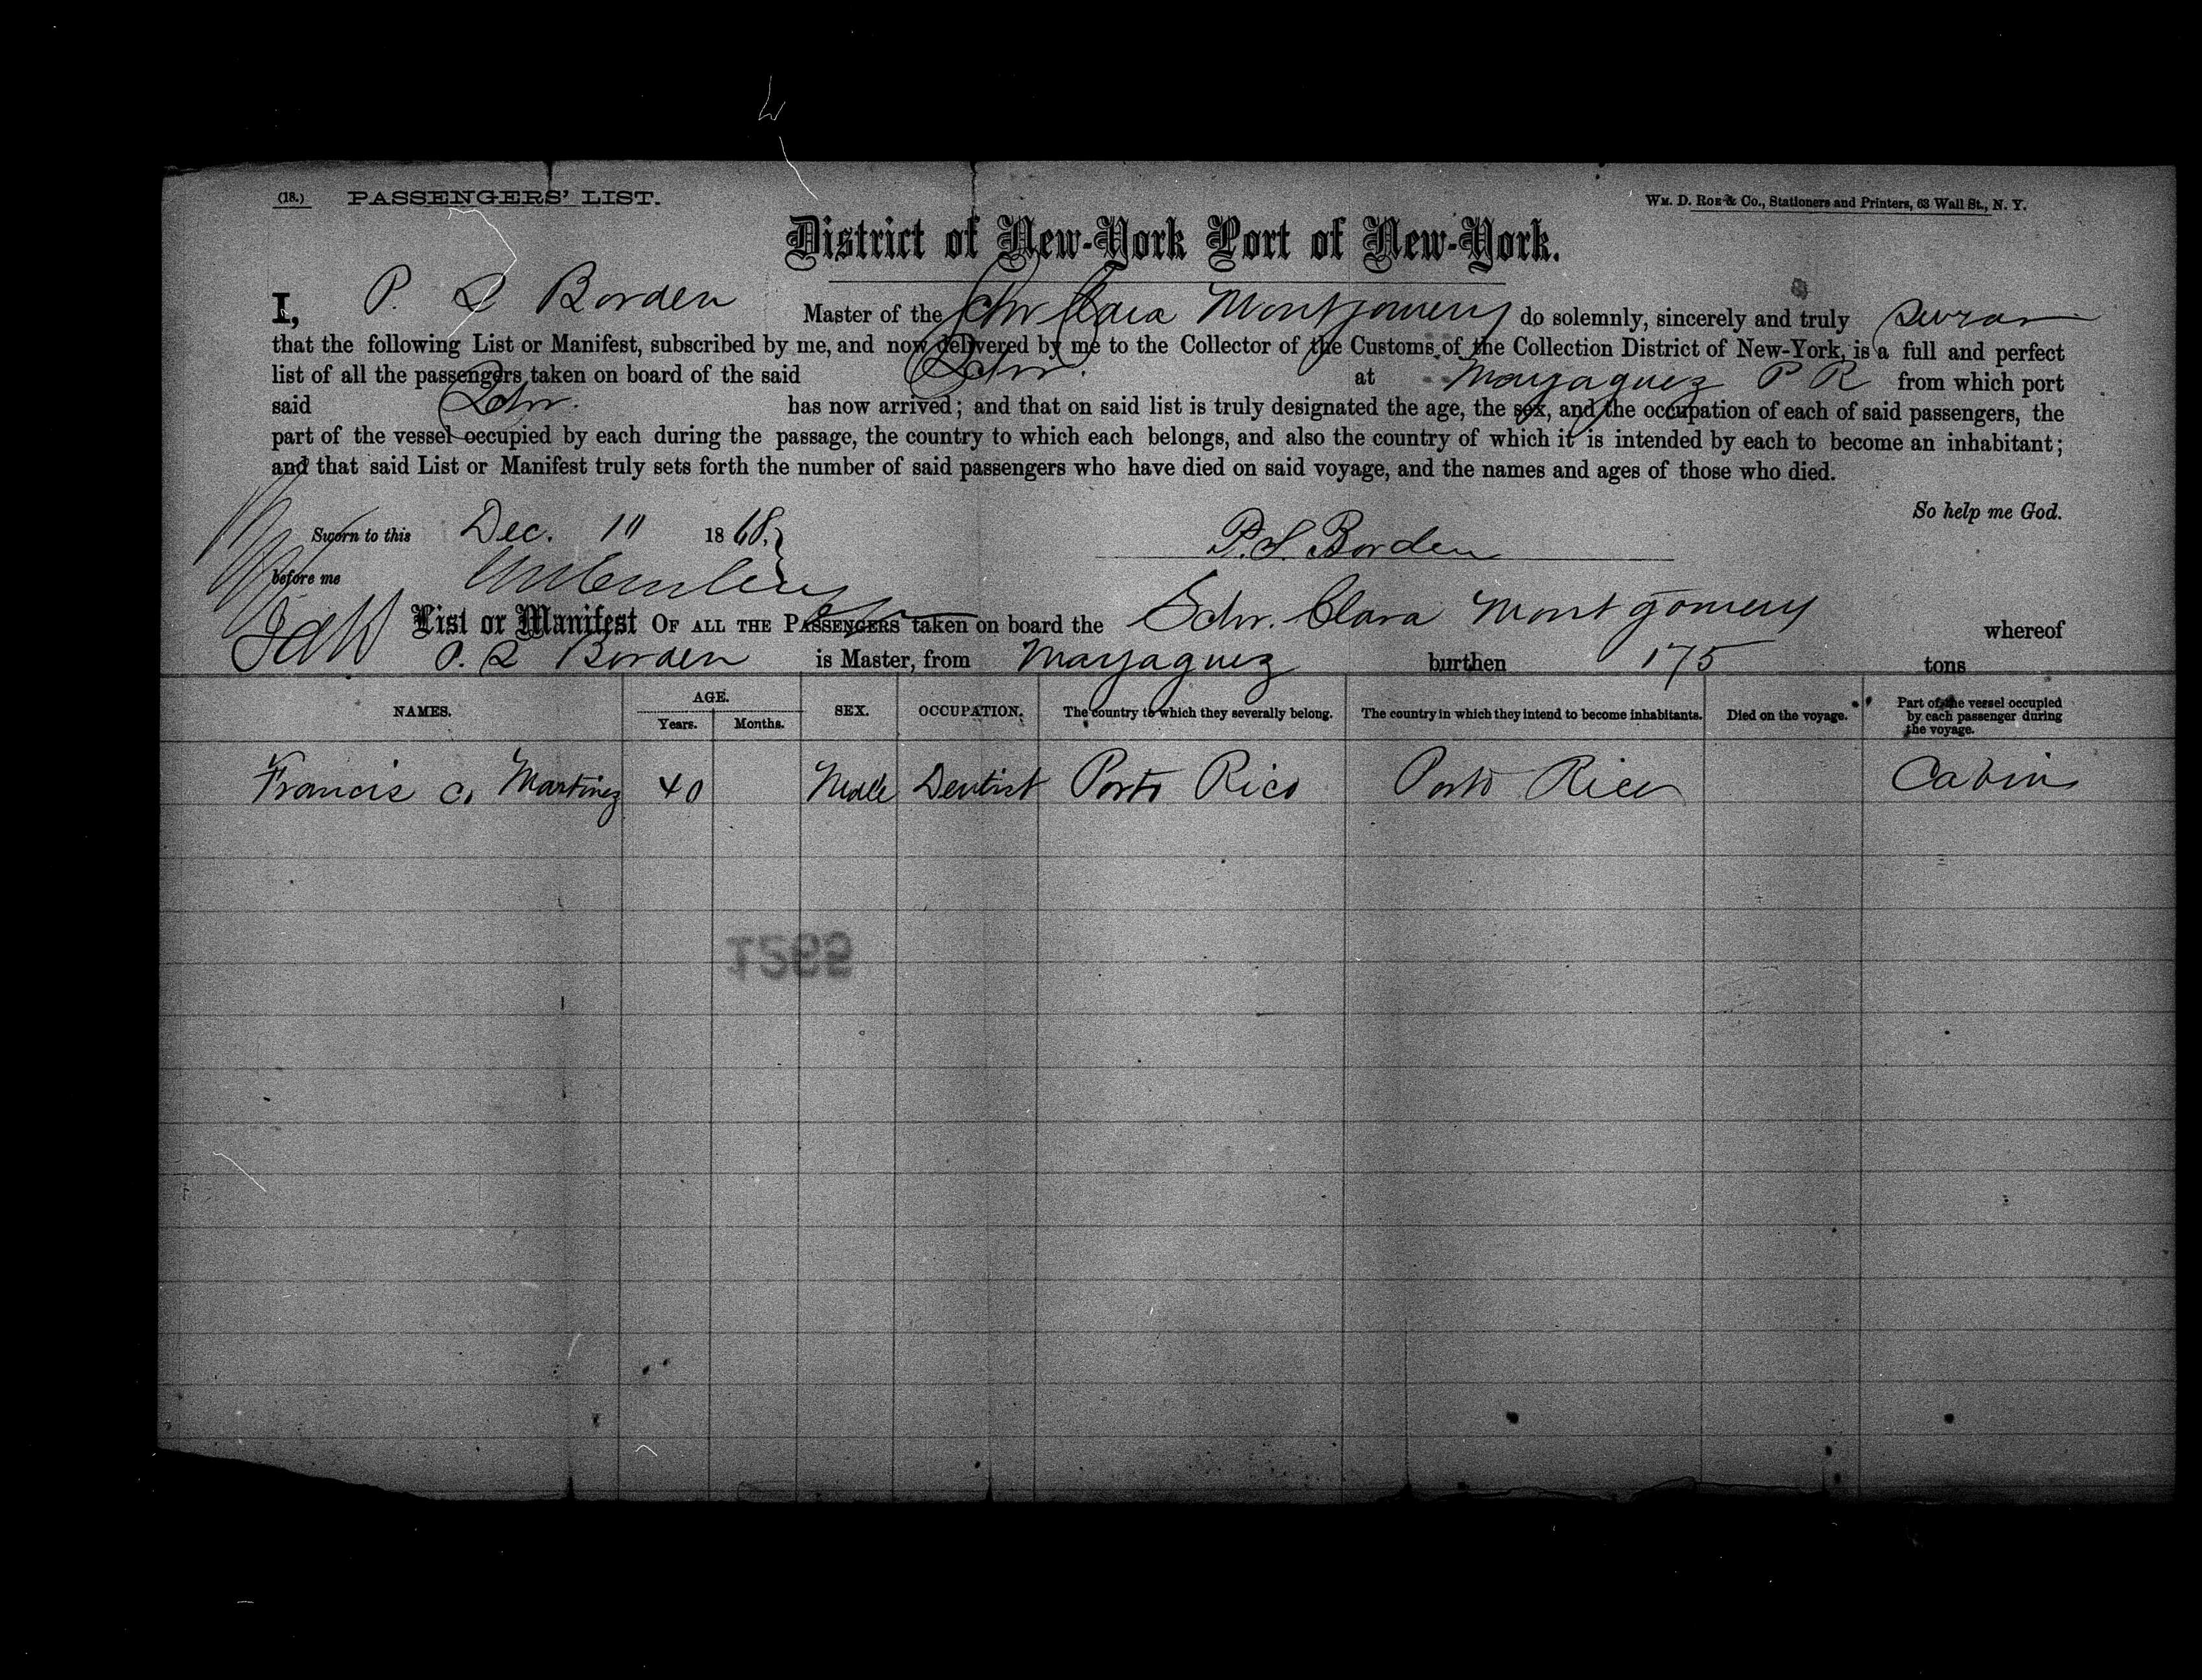 (18.) PASSENGERS' LIST. WM. D. ROE & Co., Stationers and Printers, 63 Wall St., N. Y.
District of New-York Port of New-York.
I, P. S Borden Master of the Schr Clara Montgomery do solemnly, sincerely and truly swear
that the following List or Manifest, subscribed by me, and now delivered by me to the Collector of the Customs of the Collection District of New-York, is a full and perfect
list of all the passengers taken on board of the said Schr. at Mayaguez P R from which port
said Schr. has now arrived; and that on said list is truly designated the age, the sex, and the occupation of each of said passengers, the
part of the vessel occupied by each during the passage, the country to which each belongs, and also the country of which it is intended by each to become an inhabitant;
and that said List or Manifest truly sets forth the number of said passengers who have died on said voyage, and the names and ages of those who died.
So help me God.
Sworn to this Dec. 1868. P. S. Borden
before me
List or Manifest OF ALL THE PASSENGERS taken on board the Schr. Clara Montgomery whereof
P. S Borden is Master, from Mayaguez burthen 175 tons
NAMES. AGE. Years. Months. SEX. OCCUPATION. The country to which they severally belong. The country in which they intend to become inhabitants. Died on the voyage. Part of the vessel occupied by each passenger during the voyage.
Francis C. Martinez 40 Male Dentist Porto Rico Porto Rico Cabin